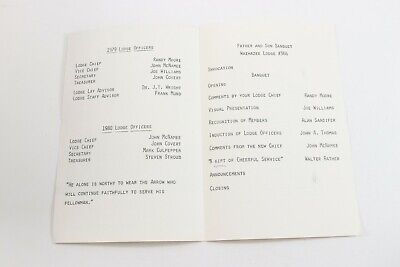 1979 Lodge Officers
Lodge Chief Randy Moore
Vice Chief John McNamee
Secretary Joe Williams
Treasurer John Covert
Lodge Lay Advisor Dr. J.T. Wright
Lodge Staff Advisor Frank Mund
1980 Lodge Officers
Lodge Chief John McNamee
Vice Chief John Covert
Secretary Mark Culpepper
Treasurer Steven Stroub
"He alone is worthy to wear the Arrow who
will continue faithfully to serve his
fellowman."
Father and Son Banquet
Waehazee Lodge #366
Invocation
Banquet
Opening
Comments by your Lodge Chief Randy Moore
Visual Presentation Joe Williams
Recognition of Members Alan Sandifer
Induction of Lodge Officers John A. Thomas
Comments from the new Chief John McNamee
"A gift of Cheerful Service" Walter Rather
Announcements
Closing